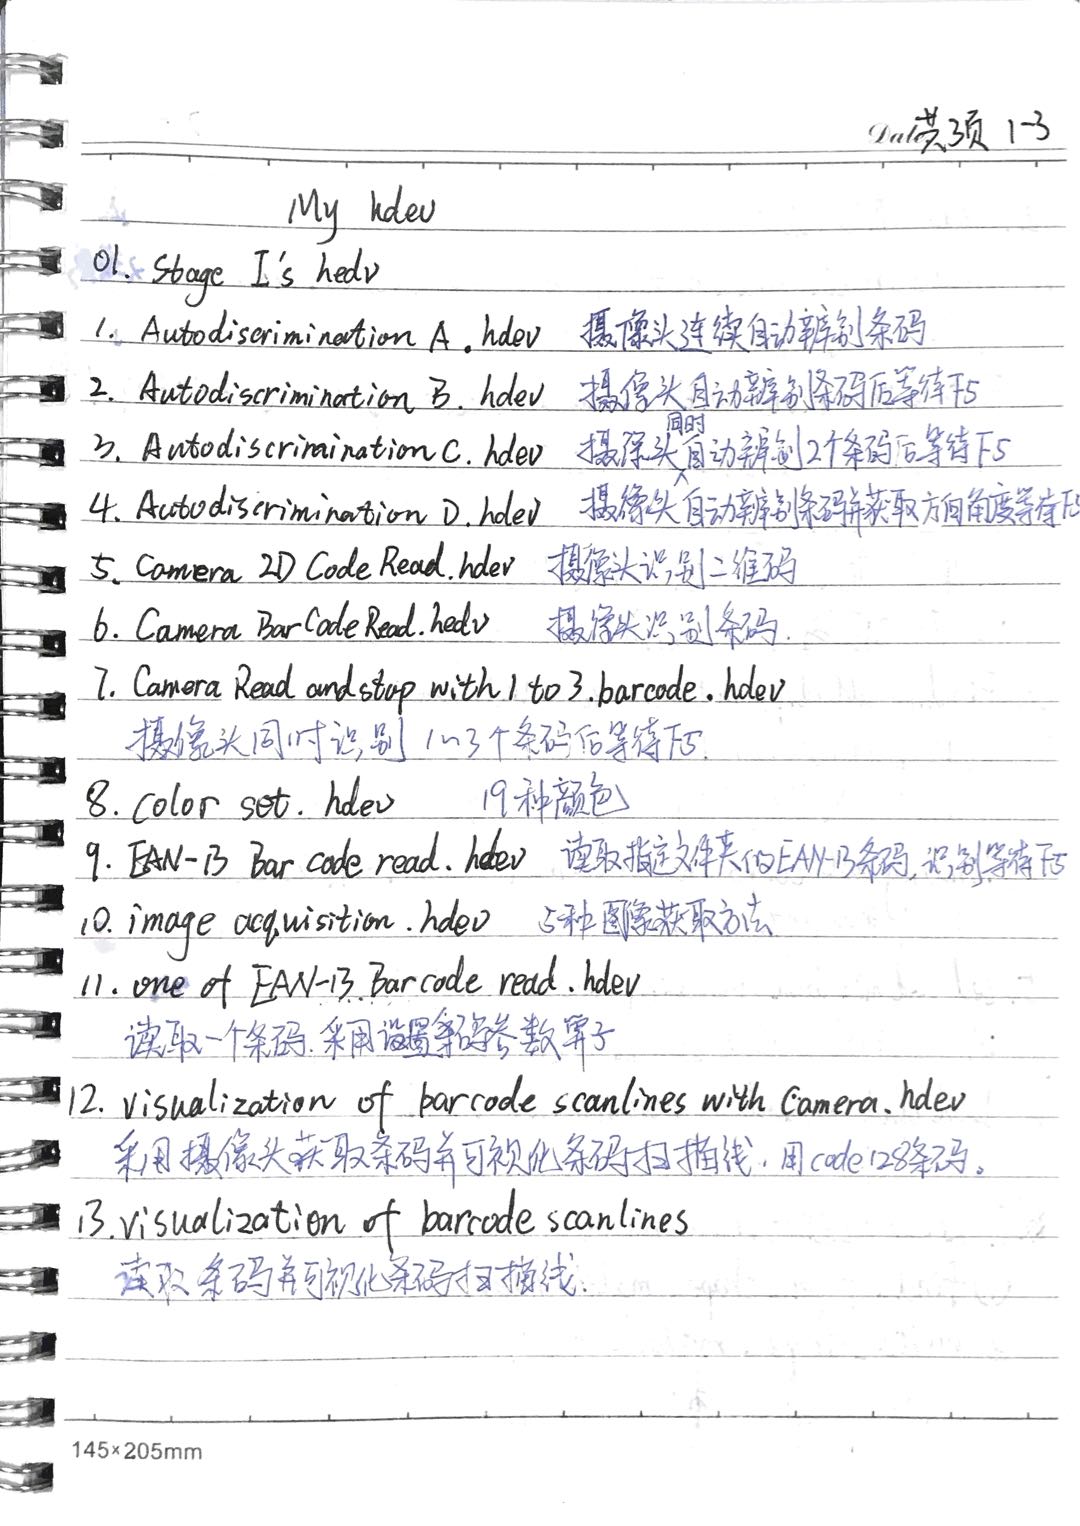 Date 共3页 1-3
My hdev
01. Stage I's hedv
1. Autodiscrimination A.hdev 摄像头连续自动辨别条码
2. Autodiscrimination B.hdev 摄像头自动辨别条码后等待F5
3. Autodiscrimination C.hdev 摄像头同时自动辨别2个条码后等待F5
4. Autodiscrimination D.hdev 摄像头自动辨别条码并获取方向角度等待F5
5. Camera 2D Code Read.hdev 摄像头识别二维码
6. Camera Bar Code Read.hedv 摄像头识别条码.
7. Camera Read and stop with 1 to 3.barcode.hdev
摄像头同时识别1~3个条码后等待F5.
8. color set.hdev 19种颜色
9. EAN-13 Bar code read.hdev 读取指定文件夹的EAN-13条码,识别等待F5
10. image acquisition.hdev 5种图像获取方法
11. one of EAN-13 Barcode read.hdev
读取一个条码.采用设置条码参数算子
12. visualization of barcode scanlines with Camera.hdev
采用摄像头获取条码并可视化条码扫描线.用code128条码。
13. visualization of barcode scanlines
读取条码并可视化条码扫描线.
145×205mm